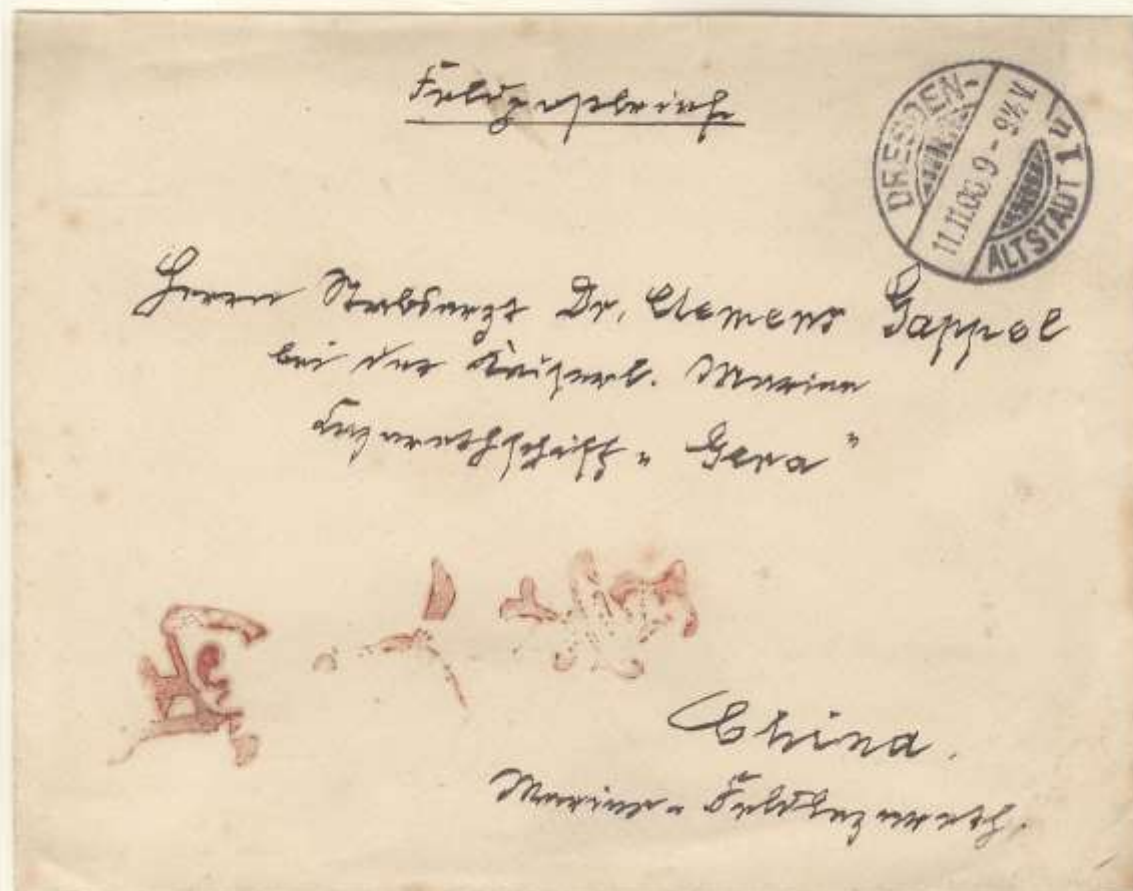 Feldpostbrief
DRESDEN-
11.11.00. 9-9½V.
ALTSTADT 1 u
Herrn Stabsarzt Dr. Clemens Gappel
bei der Kaiserl. Marine
Lazarethschiff „Gera"
China.
Marine-Feldlazareth.